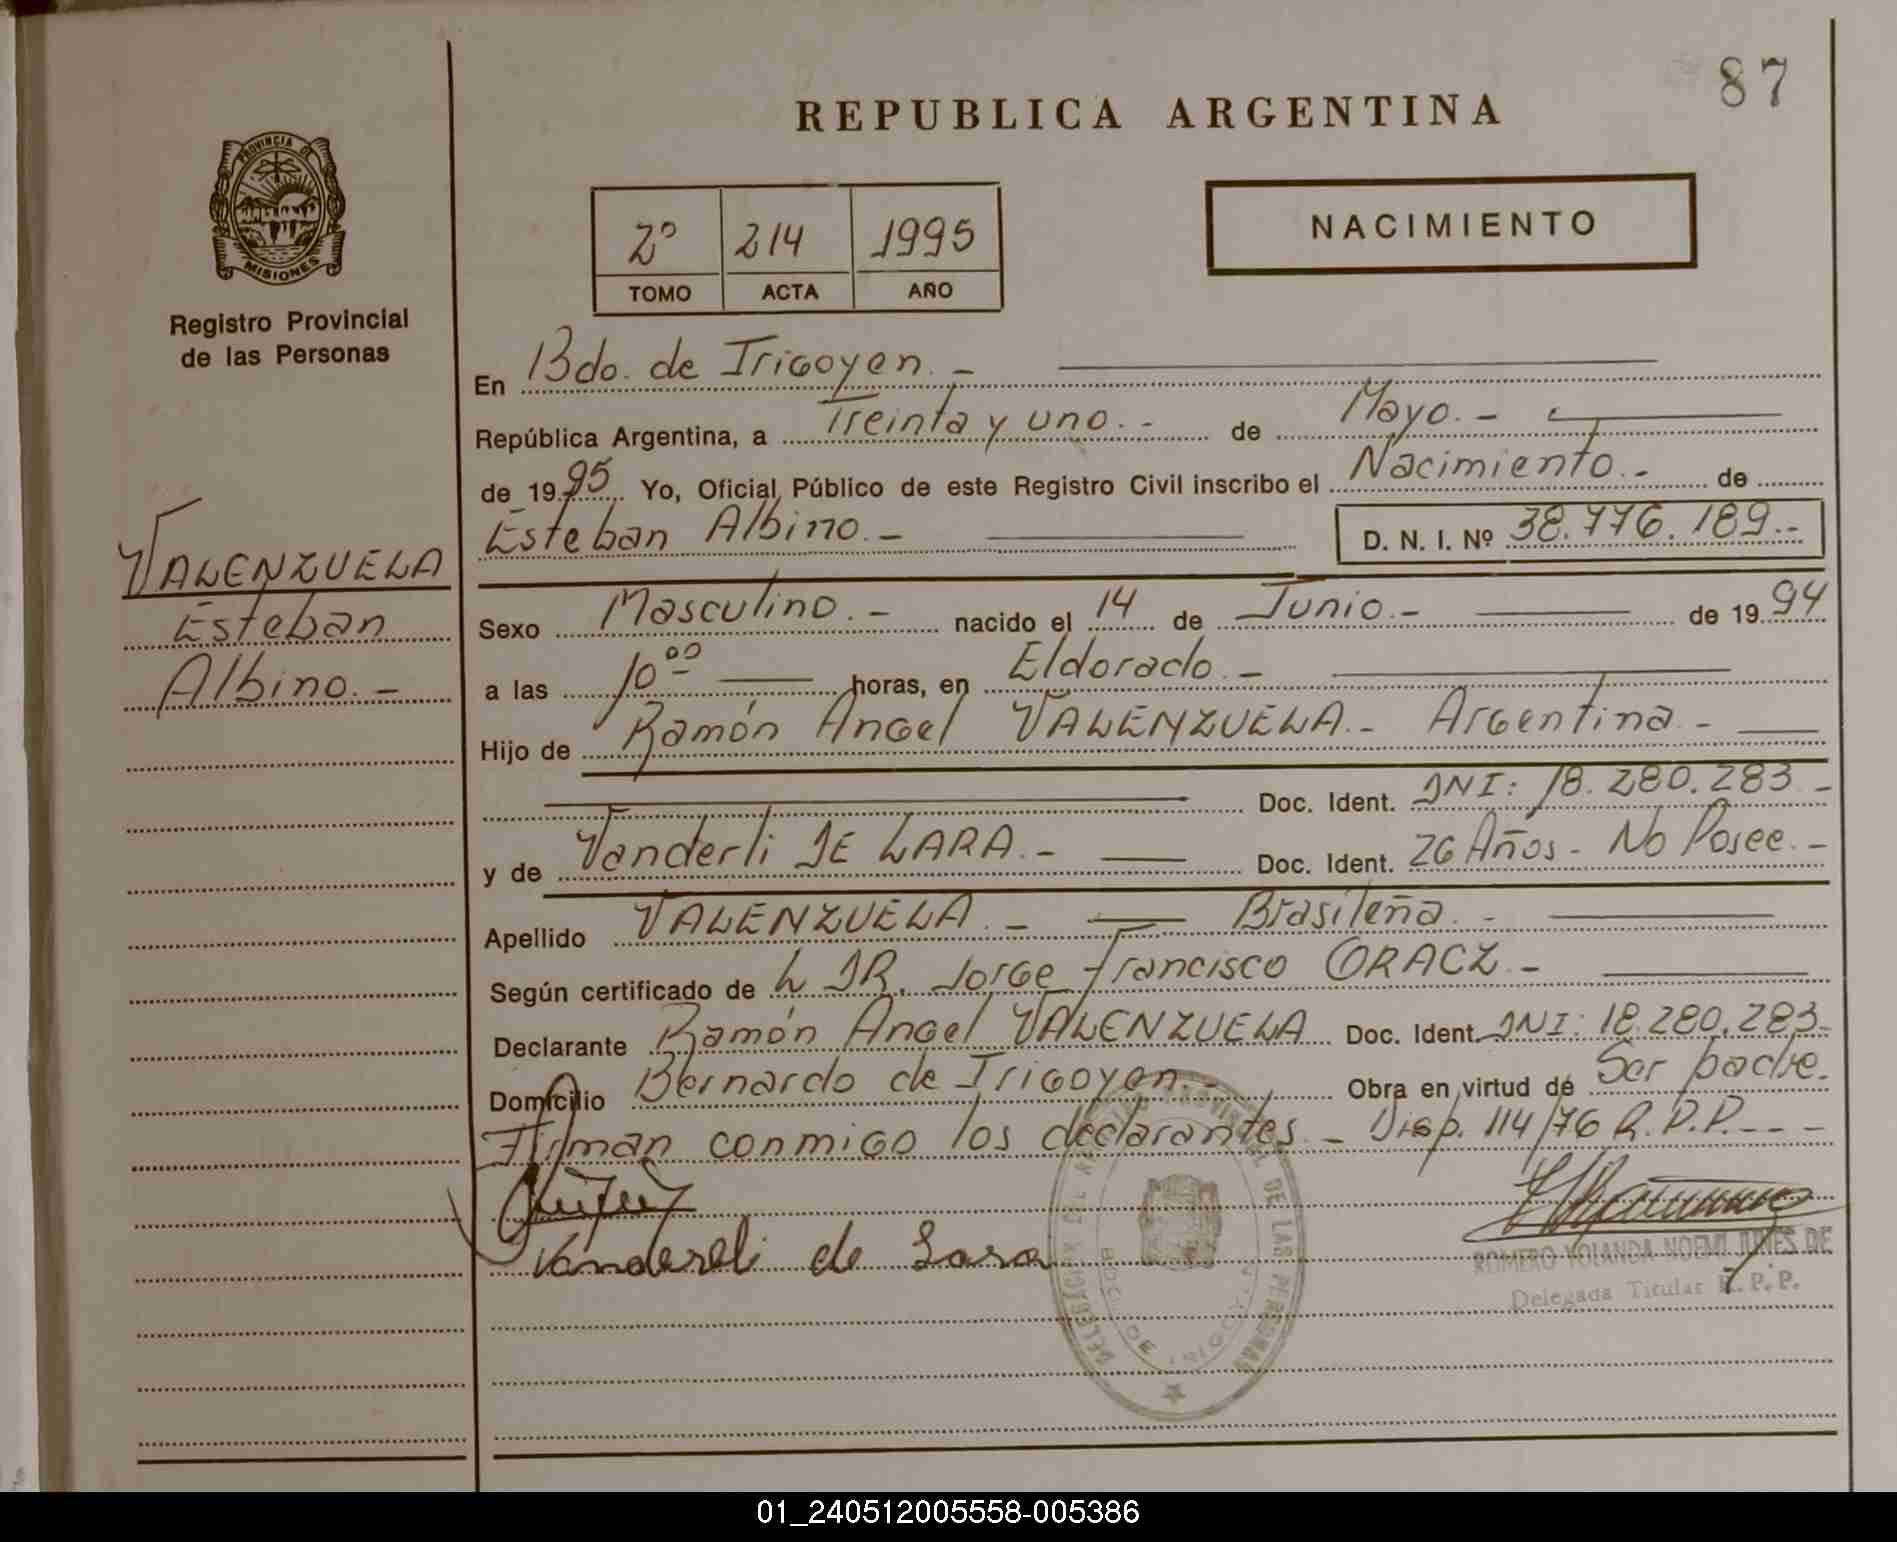 87
REPUBLICA ARGENTINA
PROVINCIA DE
MISIONES
Registro Provincial
de las Personas
2º 214 1995
TOMO ACTA AÑO
NACIMIENTO
En Bdo. de Irigoyen. -
República Argentina, a Treinta y uno. - de Mayo. -
de 1995 Yo, Oficial Público de este Registro Civil inscribo el Nacimiento. - de
Esteban Albino. - D. N. I. Nº 38.776.189.-
VALENZUELA
Esteban
Albino. -
Sexo Masculino. - nacido el 14 de Junio. - de 1994
a las 10 00 horas, en Eldorado. -
Hijo de Ramón Angel VALENZUELA. - Argentina. -
Doc. Ident. DNI: 18.280.283. -
y de Vanderli DE LARA. - Doc. Ident. 26 Años - No Posee. -
Apellido VALENZUELA. - Brasileña. -
Según certificado de L DR. Jorge Francisco ORACZ. -
Declarante Ramón Angel VALENZUELA Doc. Ident. DNI: 18.280.283.-
Domicilio Bernardo de Irigoyen. - Obra en virtud de Ser padre.
Firman conmigo los declarantes. - Disp. 114/76 R.P.P. - - -
Vanderli de Lara
DELEGACION DEL REGISTRO PROVINCIAL DE LAS PERSONAS
BDO. DE IRIGOYEN
ROMERO YOLANDA NOEMI DE
Delegada Titular R.P.P.
01_240512005558-005386